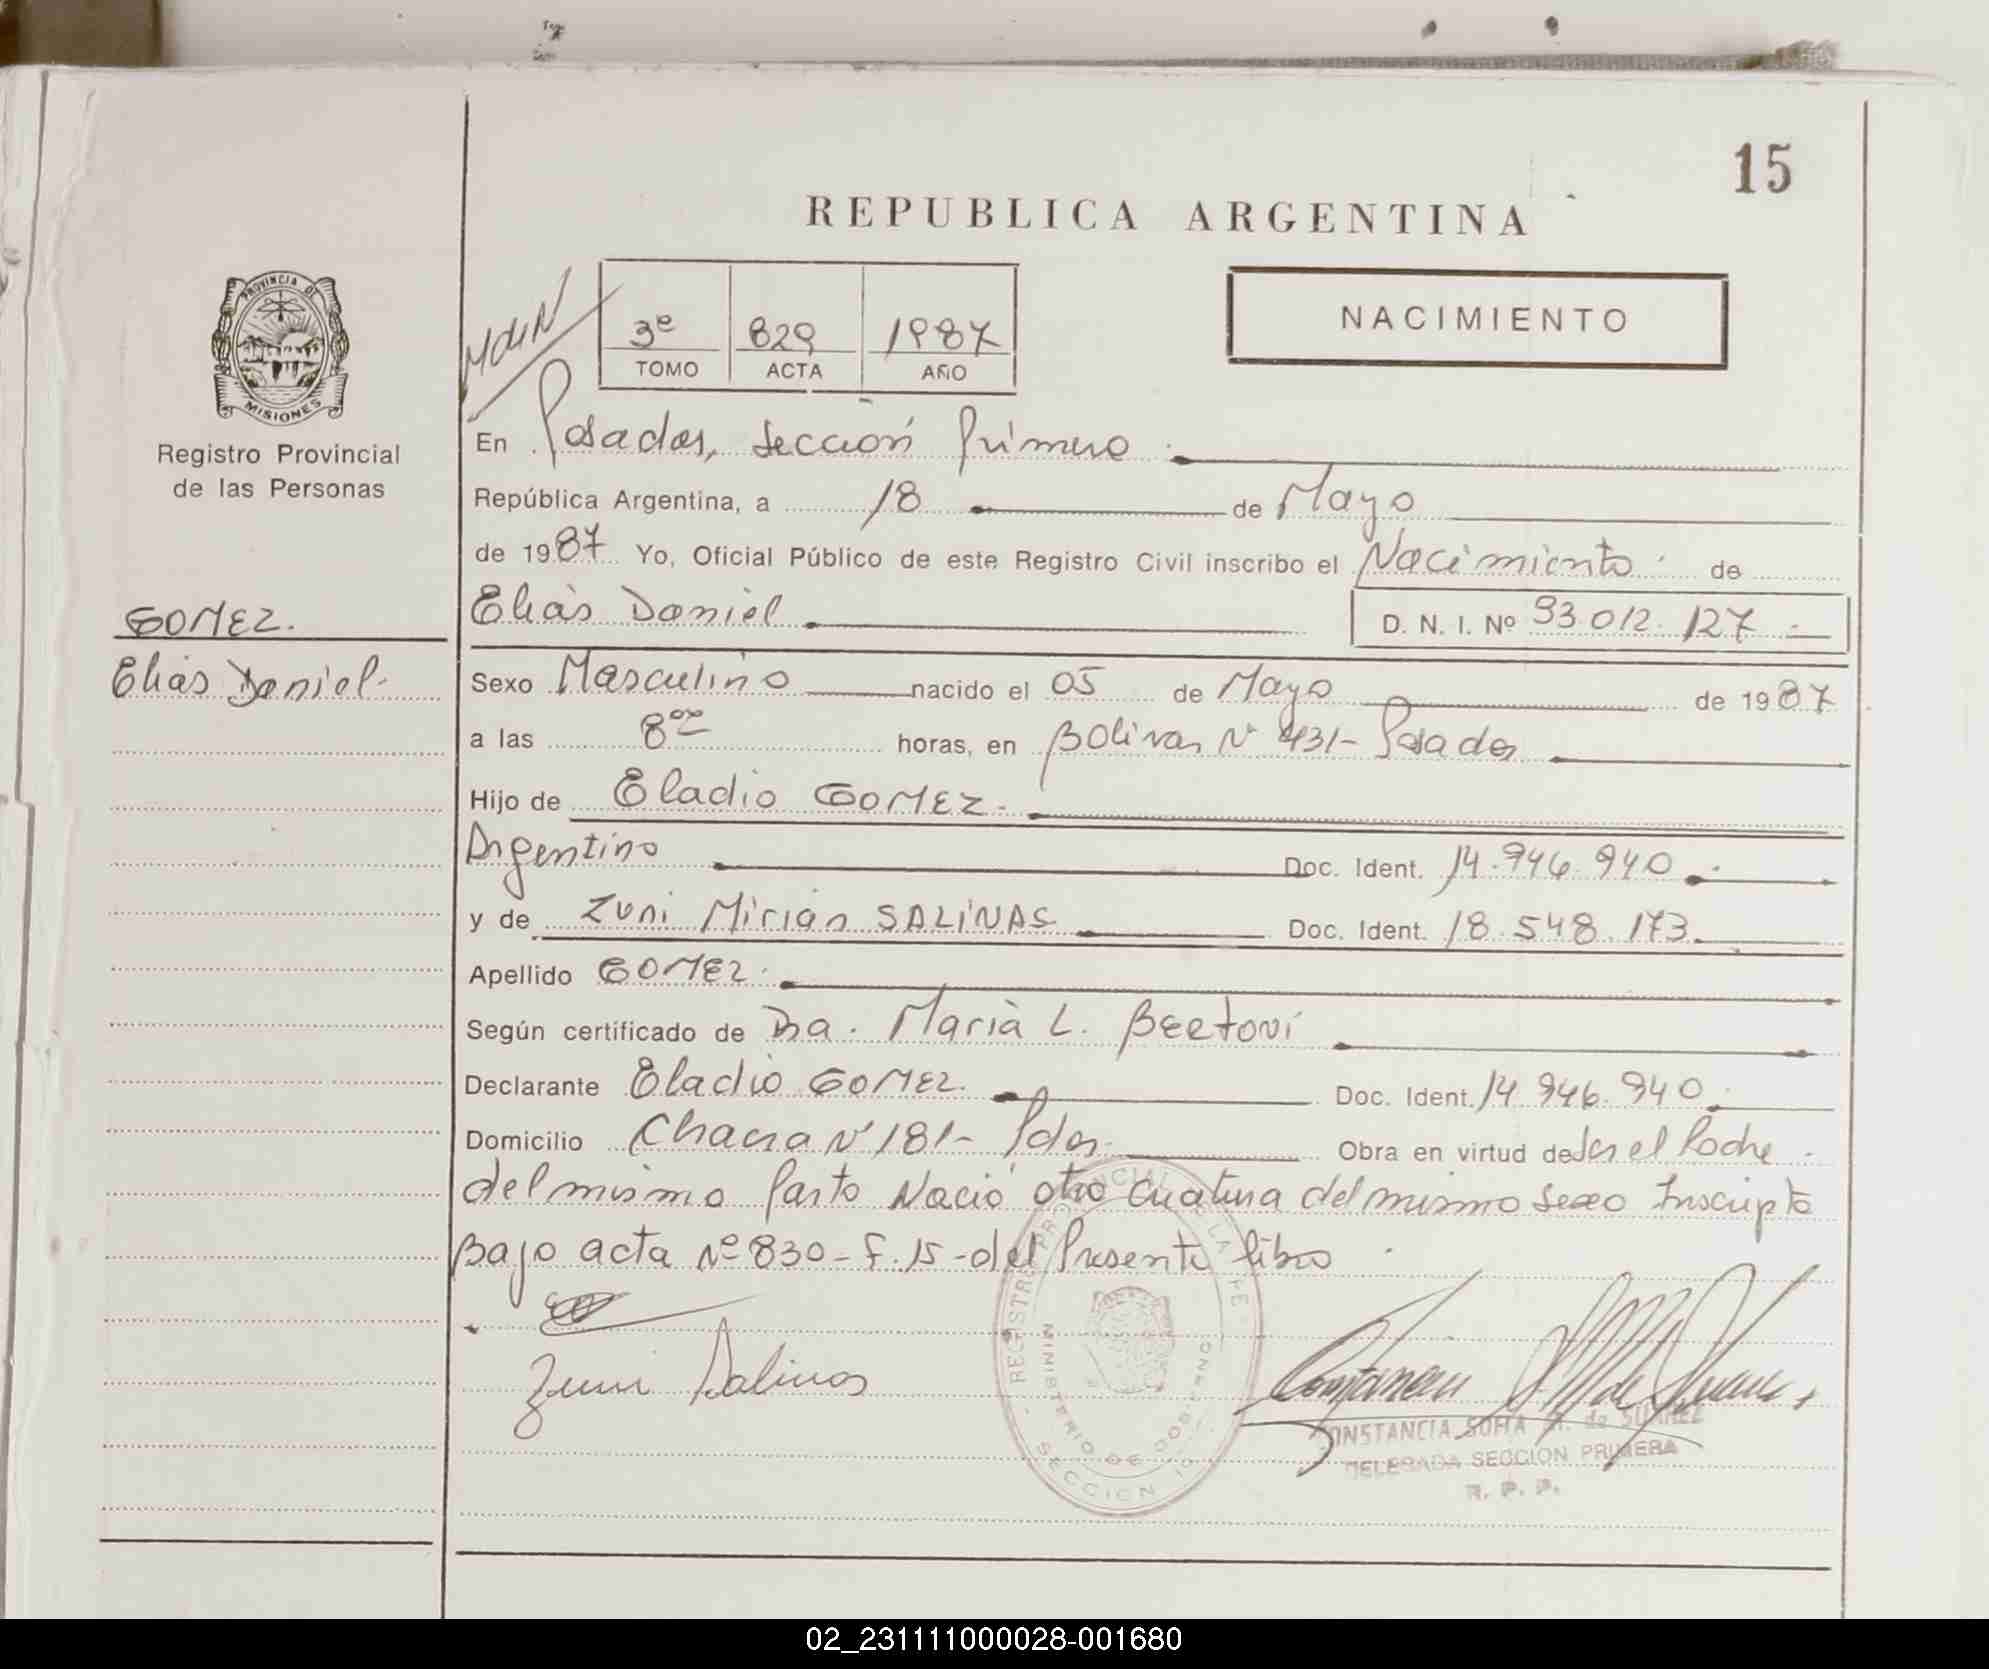 15
REPUBLICA ARGENTINA
PROVINCIA DE
MISIONES
Registro Provincial
de las Personas
3e 829 1987
TOMO ACTA AÑO
NACIMIENTO
En Posadas, Sección Primera
República Argentina, a 18 de Mayo
de 1987 Yo, Oficial Público de este Registro Civil inscribo el Nacimiento de
Elías Daniel
D. N. I. Nº 93.012.127
GOMEZ.
Elías Daniel
Sexo Masculino nacido el 05 de Mayo de 1987
a las 8 00 horas, en Bolivar Nº 431- Posadas
Hijo de Eladio GOMEZ.
Argentino Doc. Ident. 14.946.940
y de Zuni Mirian SALINAS Doc. Ident. 18.548.173
Apellido GOMEZ.
Según certificado de Dra. Maria L. Bertoni
Declarante Eladio GOMEZ. Doc. Ident. 14.946.940
Domicilio Chacra Nº 181- Pdas. Obra en virtud de Ser el Padre
del mismo Parto Nació otra Criatura del mismo sexo Inscripta
Bajo acta Nº 830- F. 15- del Presente libro
Zuni Salinas
REGISTRO PROVINCIAL DE LAS PE
MINISTERIO DE GOBIERNO
SECCION 1º
CONSTANCIA SOFIA de SUAREZ
DELEGADA SECCION PRIMERA
R. P. P.
02_231111000028-001680